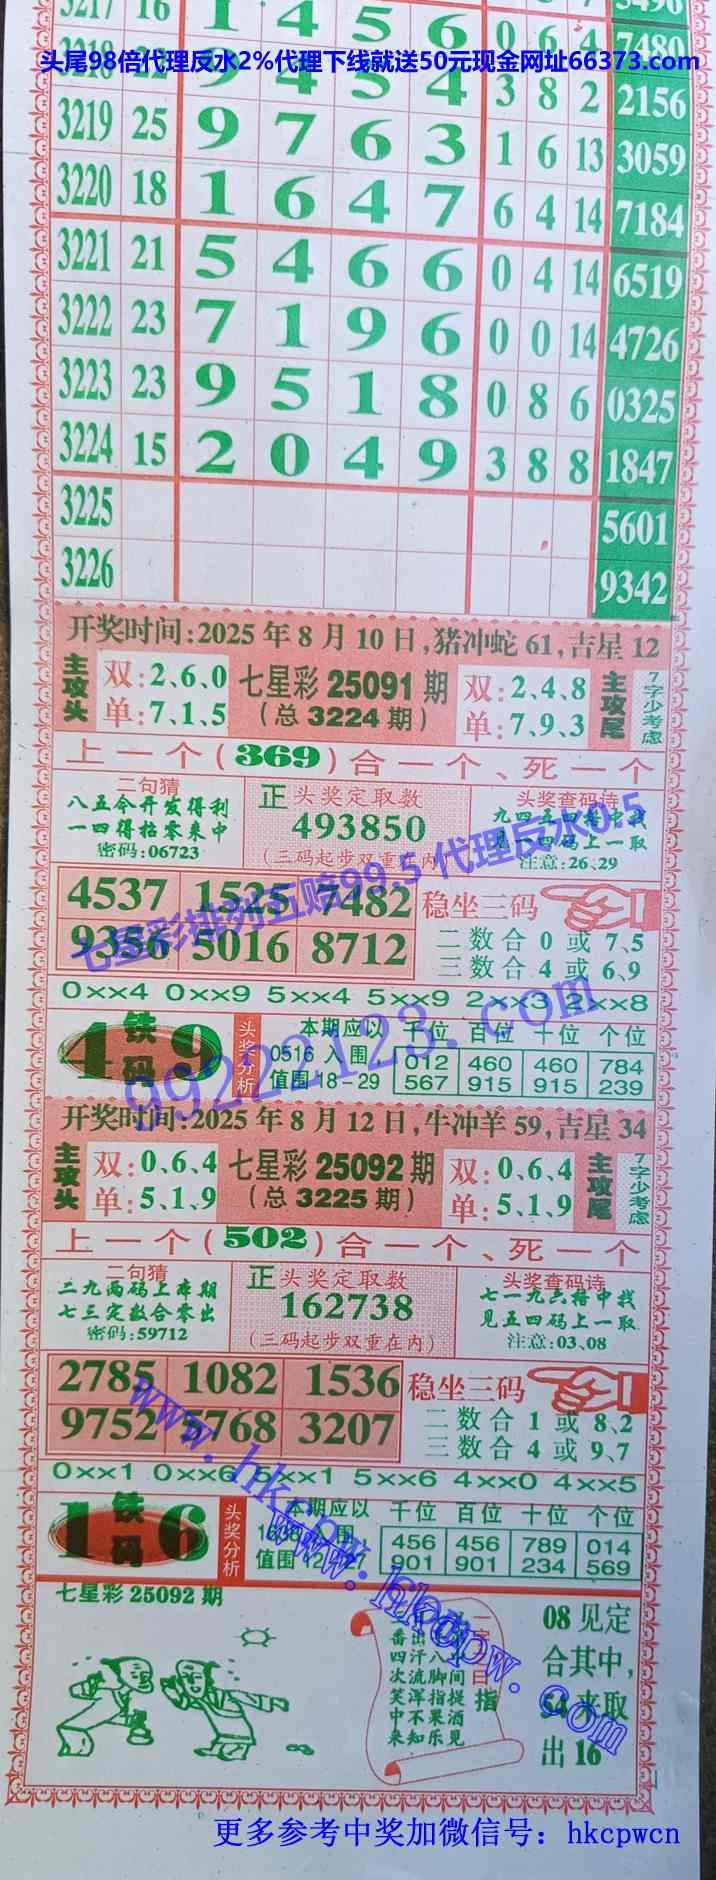 3217 16 1 4 5 6 0 6 4 7480
头尾98倍代理反水2%代理下线就送50元现金网址66373.com
3218 9 4 5 4 3 8 2 2156
3219 25 9 7 6 3 1 6 13 3059
3220 18 1 6 4 7 6 4 14 7184
3221 21 5 4 6 6 0 4 14 6519
3222 23 7 1 9 6 0 0 14 4726
3223 23 9 5 1 8 0 8 6 0325
3224 15 2 0 4 9 3 8 8 1847
3225 5601
3226 9342
开奖时间:2025年8月10日,猪冲蛇61,吉星12
主攻头 双:2,6,0 七星彩25091期 双:2,4,8 主攻尾 7字少考虑
单:7,1,5 (总3224期) 单:7,9,3
上一个(369)合一个、死一个
二句猜
八五今开发得利
一四得拾零来中
密码:06723
正 头奖定取数
493850
(三码起步双重在内)
头奖查码诗
九四五四 中找
见一四码上一取
注意:26,29
七星彩排列五赔99.5 代理反水0.5
4537 1525 7482
9356 5016 8712
稳坐三码
二数合0或7,5
三数合4或6,9
0xx4 0xx9 5xx4 5xx9 2xx3 2xx8
4 铁码 9
头奖分析
本期应以
0516入围,
值围18-29
千位 百位 十位 个位
012 460 460 784
567 915 915 239
99222123.com
开奖时间:2025年8月12日,牛冲羊59,吉星34
主攻头 双:0,6,4 七星彩25092期 双:0,6,4 主攻尾 7字少考虑
单:5,1,9 (总3225期) 单:5,1,9
上一个(502)合一个、死一个
二句猜
二九两码上本期
七三定数合零出
密码:59712
正 头奖定取数
162738
(三码起步双重在内)
头奖查码诗
七一九六 中找
见五四码上一取
注意:03,08
2785 1082 1536
9752 5768 3207
稳坐三码
二数合1或8,2
三数合4或9,7
0xx1 0xx6 5xx1 5xx6 4xx0 4xx5
1 铁码 6
头奖分析
本期应以
值围
千位 百位 十位 个位
456 456 789 014
901 901 234 569
www.hkcpw.com
www.hkcpw.com
七星彩25092期
番出
四汗八
次流脚间
笑浑指提
中不果酒
来知乐见
指
08见定
合其中,
54来取
出16
更多参考中奖加微信号：hkcpwcn